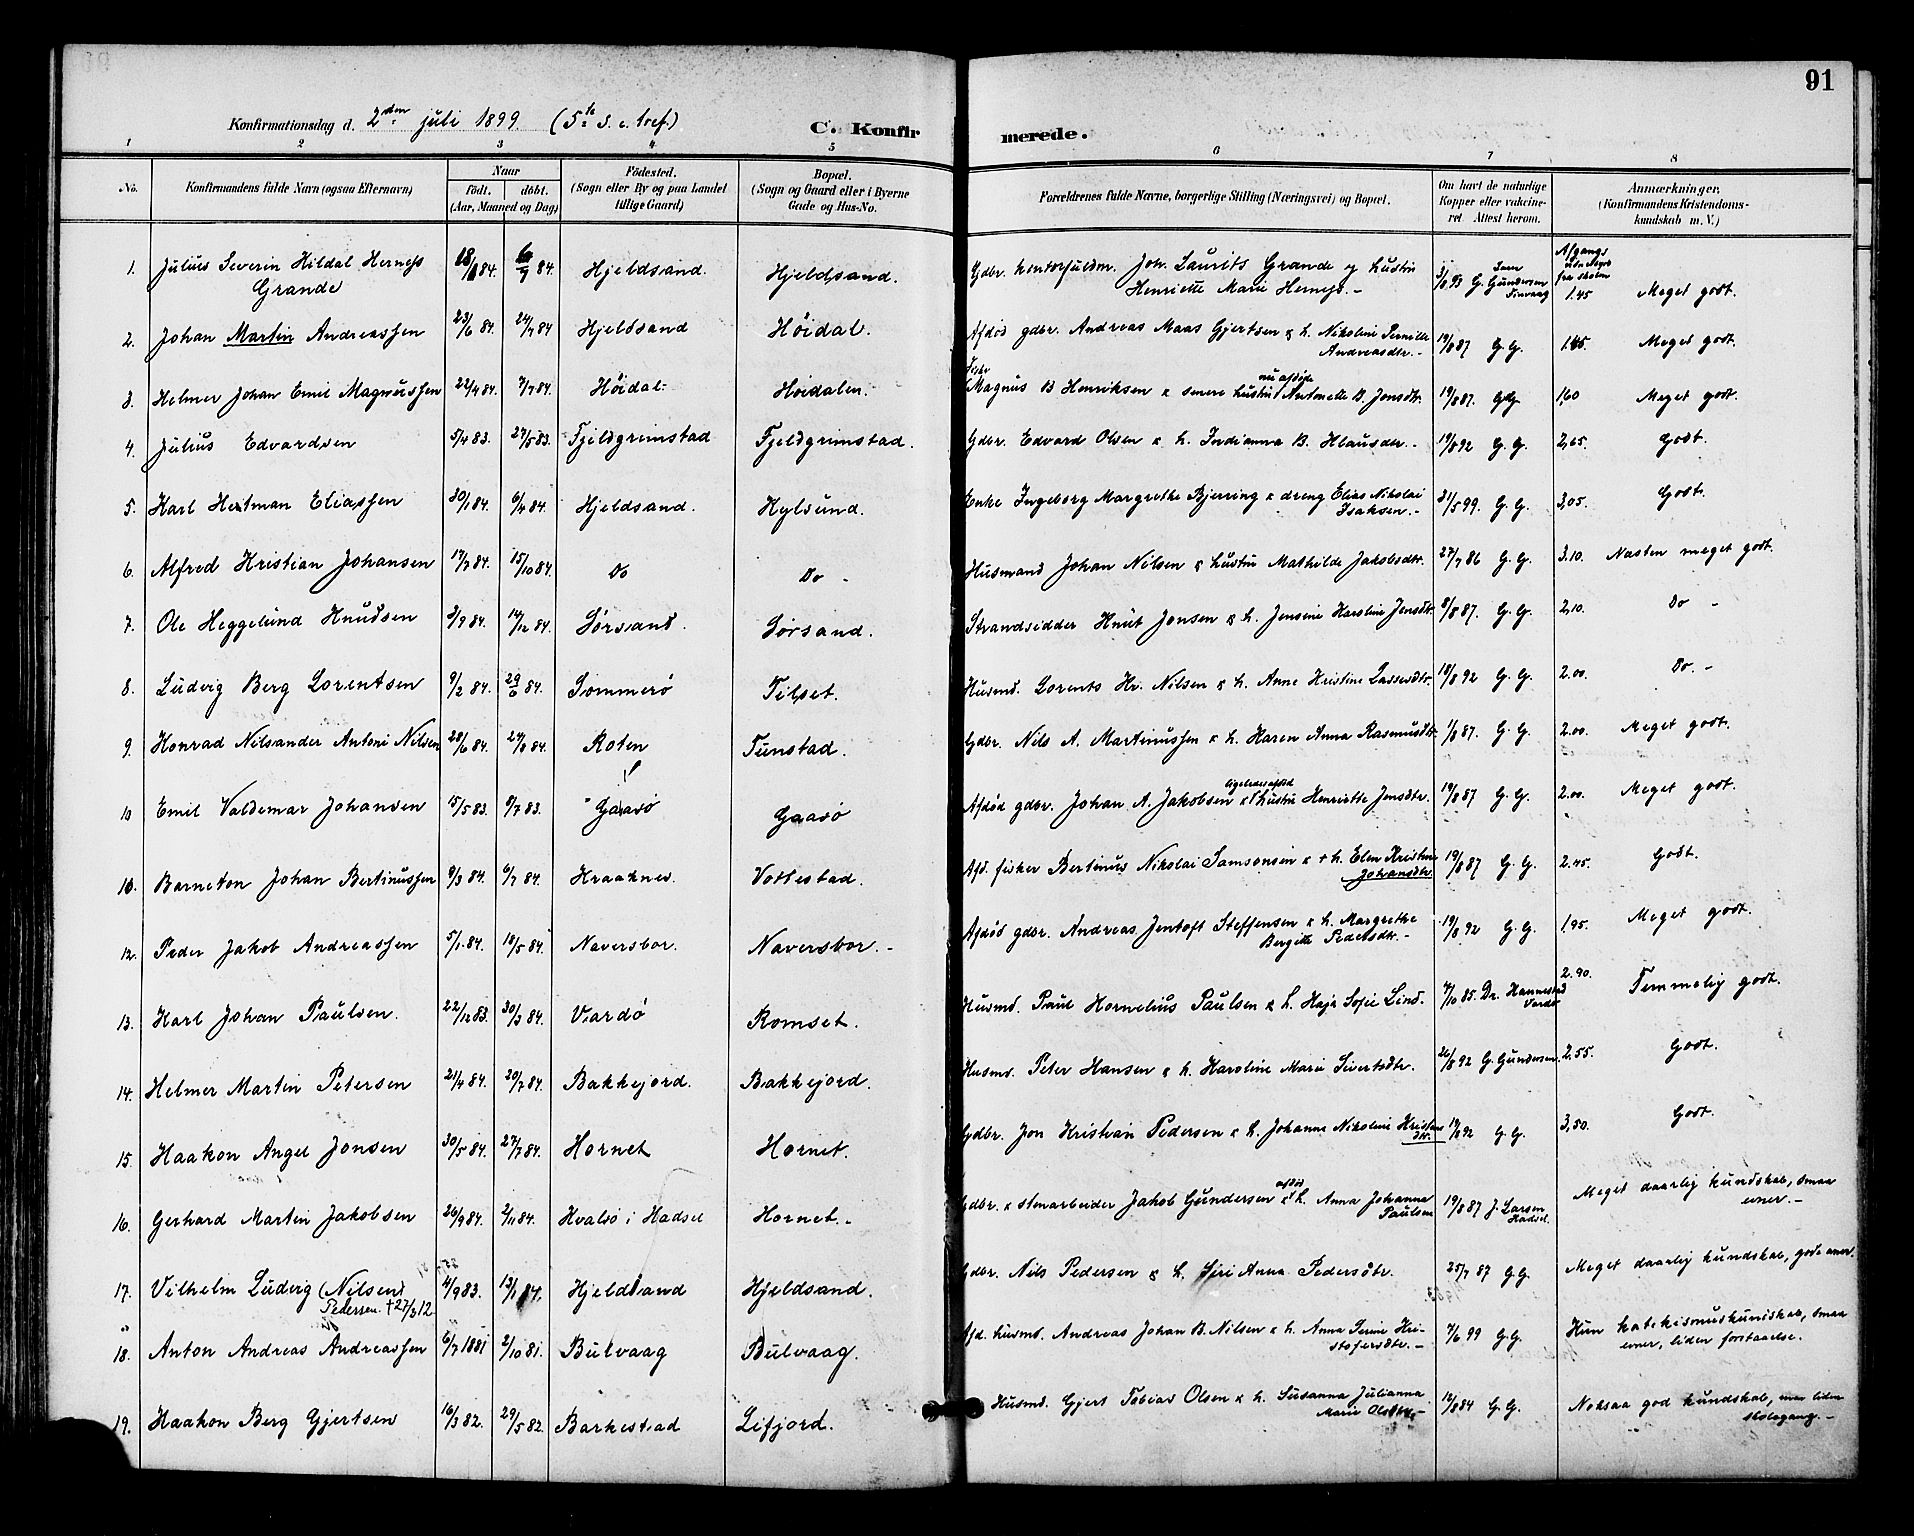 91
Konfirmationsdag d. 2den juli 1899. (5te s. e. tref.)
C. Konfir merede.
1 2 3 4 5 6 7 8
No. Konfirmandens fulde Navn (ogsaa Efternavn) Naar födt. döbt. (Aar, Maaned og Dag) Födested. (Sogn eller By og paa Landet tillige Gaard) Bopæl. (Sogn og Gaard eller i Byerne Gade og Hus-No. Forældrenes fulde Navne, borgerlige Stilling (Næringsvei) og Bopæl. Om havt de naturlige Kopper eller vaccineret. Attest herom. Anmærkninger. (Konfirmandens Kristendomskundskab m. V.)
1. Julius Severin Hildal Hernes Grande 84. 84. Hjeldsand. Hjeldsand. Gdbr. kontorfuldm. Joh. Laurits Grande og hustru Henriette Marie Hernes.- 3/8 93 G. Gundersen Tinvaag Afgangs fra skolen 1.45 Meget godt.
2. Johan Martin Andreassen 23/6 84. 24/7 84 Hjeldsand Höidal. Afdød gdbr. Andreas Maas Gjertsen & h. Nikoline Pernille Andreasdtr.- 19/8 87 G. G. 1.45. Meget godt.
3. Helmer Johan Emil Magnussen 22/4 84. 7/7 84. Höidal Höidalen. Magnus B Henriksen & senere hustru nu afdøde Antonette B. Jensdtr. 19/8 87. G.G. 1,60 Meget godt.
4. Julius Edvardsen 5/4 83. 27/5 83. Fjeldgrimstad Fjeldgrimstad. Gdbr. Edvard Olsen & h. Indianna B. Klausdtr.- 19/8 92 G. G. 2,65. Godt.
5. Karl Heitman Eliassen 30/1 84. 6/4 84. Hjeldsand. Kylsund. Enke Ingeborg Margrethe Bjerring & dreng Elias Nikolai Isaksen.- 31/5 99. G. G. 3,05. Godt.
6. Alfred Kristian Johansen 17/7 84. 15/10 84. Do Do - Husmand Johan Nilsen & hustru Mathilde Jakobsdtr. 27/7 86 G. G. 3.10. Næsten meget godt.
7. Ole Heggelund Knudsen 3/9 84. 14/12 84. Sørsand. Sørsand. Strandsidder Knut Jonsen & h. Jensine Karoline Jensdtr. 8/8 87. G. G. 2,10. Do -
8. Ludvig Berg Lorentsen 9/2 84. 29/6 84. Sommerø Tilset. Husmd. Lorents Kr. Nilsen & h. Anne Kristine Lassesdtr. 18/8 92 G. G. 2.00. Do. -
9. Konrad Nilsander Antoni Nilsen 28/6 84. 24/8 84. Roten Tunstad. Gdbr. Nils A. Martinussen & h. Karen Anna Rasmusdtr. 1/8 87. G. G. 2.00. Meget godt.
10 Emil Valdemar Johansen 15/5 83. 8/7 83. Gaasø Gaasø Afdød gdbr. Johan A. Jakobsen & ligeledes afdød hustru Henriette Jensdtr. 19/8 87 G. G. 2.00. Meget godt.
10. Barneton Johan Bertinussen 9/3 84. 6/7 84. Kraaknes. Vottestad. Afd. fisker Bertinus Nikolai Samsonsen & + h. Elen Kristine Johansdtr. 19/8 87 G. G. 2.45. Godt.
12. Peder Jakob Andreassen 5/1 84. 18/5 84. Naversbor. Naversbor.- Afdød gdbr. Andreas Jentoft Steffensen & h. Margrethe Bergitte Pedersdtr.- 19/8 92 G. G. 1.95. Meget godt.
13. Karl Johan Paulsen. 22/12 83. 30/3 84. Vardö Romset. Husmd. Paul Kornelius Paulsen & h. Kaja Sofie Lind. 7/10 85. Dr. Hannestad Vardø 2.90. Temmelig godt.
14. Helmer Martin Petersen 21/4 84. 20/7 84. Bakkejord. Bakkejord. Husmd. Peter Hansen & h. Karoline Marie Sivertsdtr. 26/8 92 G. Gundersen. 2,55. Godt.
15. Haakon Angel Jonsen 30/5 84. 27/7 84. Hornet Hornet. Gdbr. Jon Kristian Pedersen & h. Johanne Nikoline Kristensdtr. 19/8 92 G. G. 3,50. Godt.
16. Gerhard Martin Jakobsen 26/9 84. 2/11 84. Kvalsø i Hadsel Hornet.- Gdbr. & stenarbeider Jakob Gundersen & afdød h. Anna Johanna Paulsen 19/8 87 J. Larsen Hadsel. Meget daarlig kundskab, smaa evner.-
17. Vilhelm Ludvig (Nilsen) Pedersen. +27/3 12. 4/9 83. 13/1 84. Hjeldsand Hjeldsand. Gdbr. Nils Pedersen & h. Siri Anna Pedersdtr. 25/7 87 G.G. Meget daarlig kundskab, gode evner.
18. Anton Andreas Andreassen 6/7 1881 2/10 81. Bulvaag Bulvaag. Afd. husmd. Andreas Johan B. Nilsen & h. Anna Serine Kristofersdtr.- 7/6 99 G.G. Kun katekismuskundskab, smaa evner, liden forstaaelse.
19. Haakon Berg Gjertsen 16/3 82. 29/5 82. Barkestad Lifjord. Husmd. Gjert Tobias Olsen & h. Susanna Julianna Marie Olsdtr.- 12/8 84 G. G. Noksaa god kundskab, men liden skolegang.-